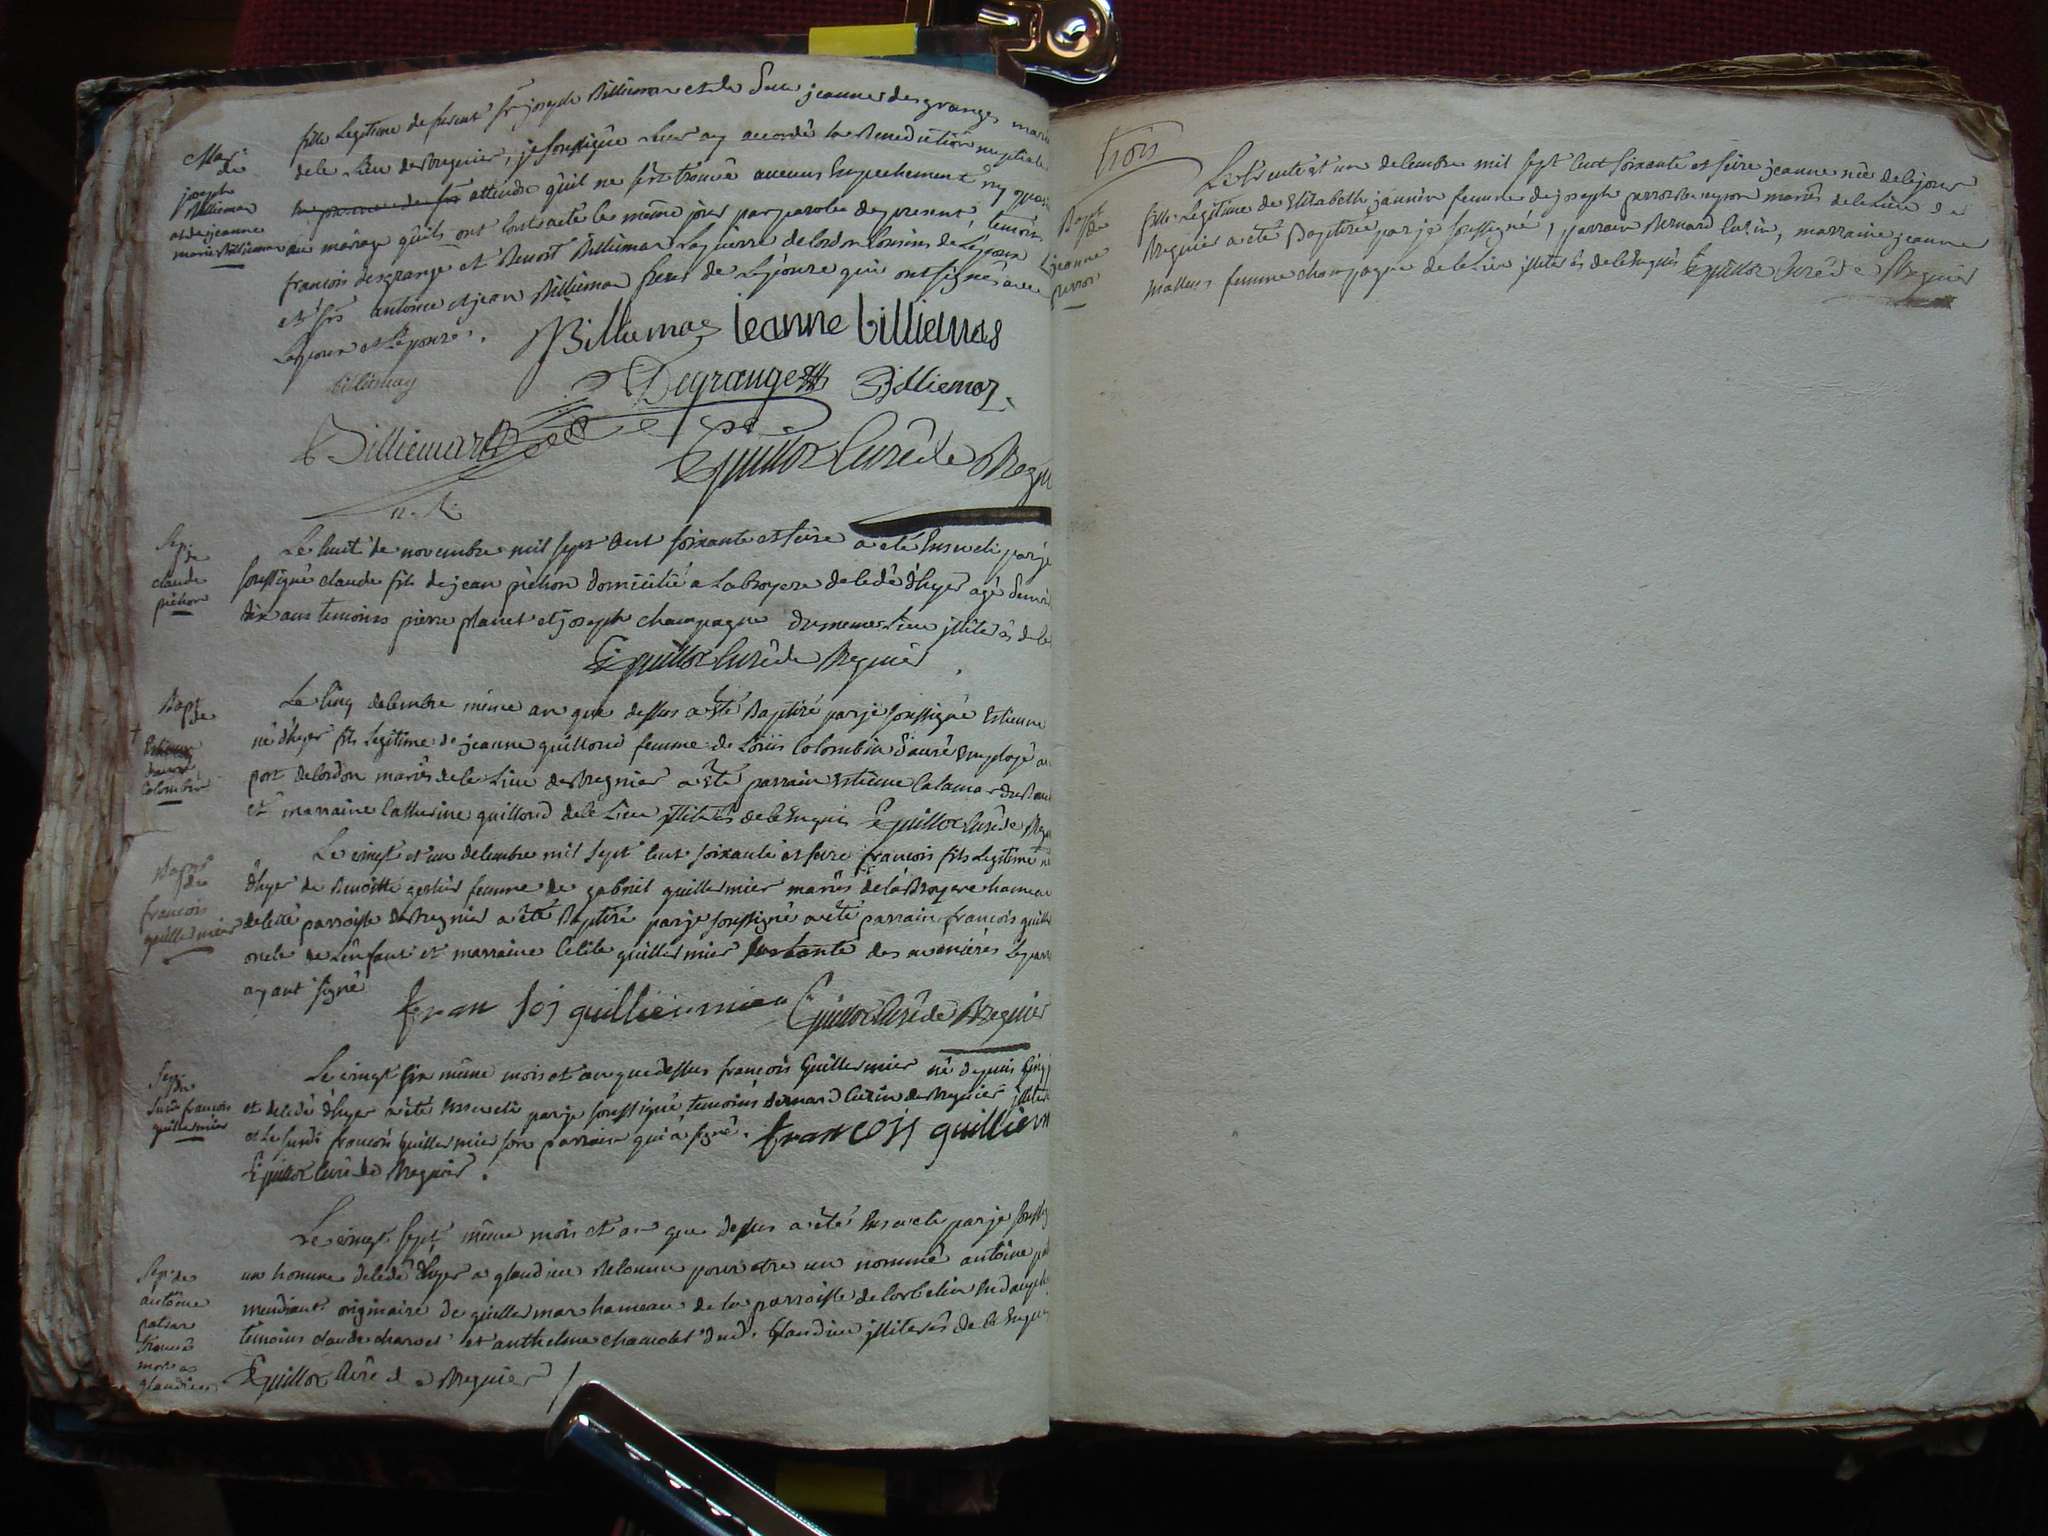 fille Legitime de feeut sr joseph Billiemar et de Dlle jeanne desgranges mari
Mar. de joseph Billiemar et de jeanne marie Billiemar
de le Lieu de Bregnier, je soussigné leur ay accordé la Benediction nuptiale
attendu qu'il ne s'est trouvé aucuns Empechement ny oppos
au mariage qu'ils ont contracté le même jour par parole de present, temoins
francois desgrange et Benoit Billiemar de Cordon Cousins de Lepoux
et srs antoine et jean Billiemar freres de Lepouse qui ont signés avec
Lepoux et Lepouse.
Billiemaz jeanne billiemas
billiemaz
Degranges Billiemaz
Billiemaz
Guilloz Curé de Bregni
Sep. de claude pichon
Le huit de novembre mil sept Cent soixante et seize a eté Enseveli par je
soussigné claude fils de jean pichon domicilié a La Broyere decedé d'hyer agé d'envi
dix ans temoins pierre planet et joseph champagne du meme Lieu illiterés de ce
Guilloz Curé de Bregnier
Bapt de Estienne dauré Colombin
Le Cinq decembre même an que dessus a Eté Baptizé par je soussigné Estienne
né d'hyer fils Legitime de jeanne guilloud femme de Colombin d'auré Employé au
port de Cordon mariés de le Lieu de Bregnier a Eté parrain Estienne Calamar
et marraine Catherine guilloud de le Lieu illiterés de ce Enquis Guilloz Curé de Breg
Bapt de francois guillermier
Le vingt et un decembre mil sept Cent soixante et seize francois fils Legitime né
d'hyer de Benoitte femme de gabriel guillermier mariés de la Broyere hameau
de parroisse de Bregnier a eté Baptizé par je soussigné a eté parrain francois guille
oncle de L'enfant et marraine Cecile guillermier des avenieres Leparr
ayant signé
fran sois guilliermier Guilloz Curé de Bregnier
Sep. de francois guillermier
Le vingt six même mois et an que dessus francois Guillermier né depuis Cinq j
et decedé d'hyer a eté Enseveli par je soussigné, temoins Bernard Cuzin de Bregnier illiteré
et Le susdt francois Guillermier son parrain qui a signé. francois guillierm
Guilloz Curé de Bregnier.
Sep. de antoine trouvé mort a glandieu
Le vingt sept même mois et an que dessus a eté Enseveli par je soussig
un homme decedé d'hyer a glandieu Reconnu pour etre un nommé antoine
mendiant originaire de guillermar hameau de la parroisse de Corbelin En dauph
temoins claude charvet et anthelme chamolet dud. Glandieu illiterés de ce Enquis
Guilloz Curé de Bregnier
trois
Bapt de jeanne perrot
Le trente et un decembre mil sept Cent soixante et seize jeanne née de le jour
fille Legitime de Elizabeth jannin femme de joseph mariés de le Lieu de
Bregnier a eté Baptizée par je soussigné, parrain Bernard Cuzin, marraine jeanne
femme champagne de le Lieu illiterés de ce Enquis Guilloz Curé de Bregnier